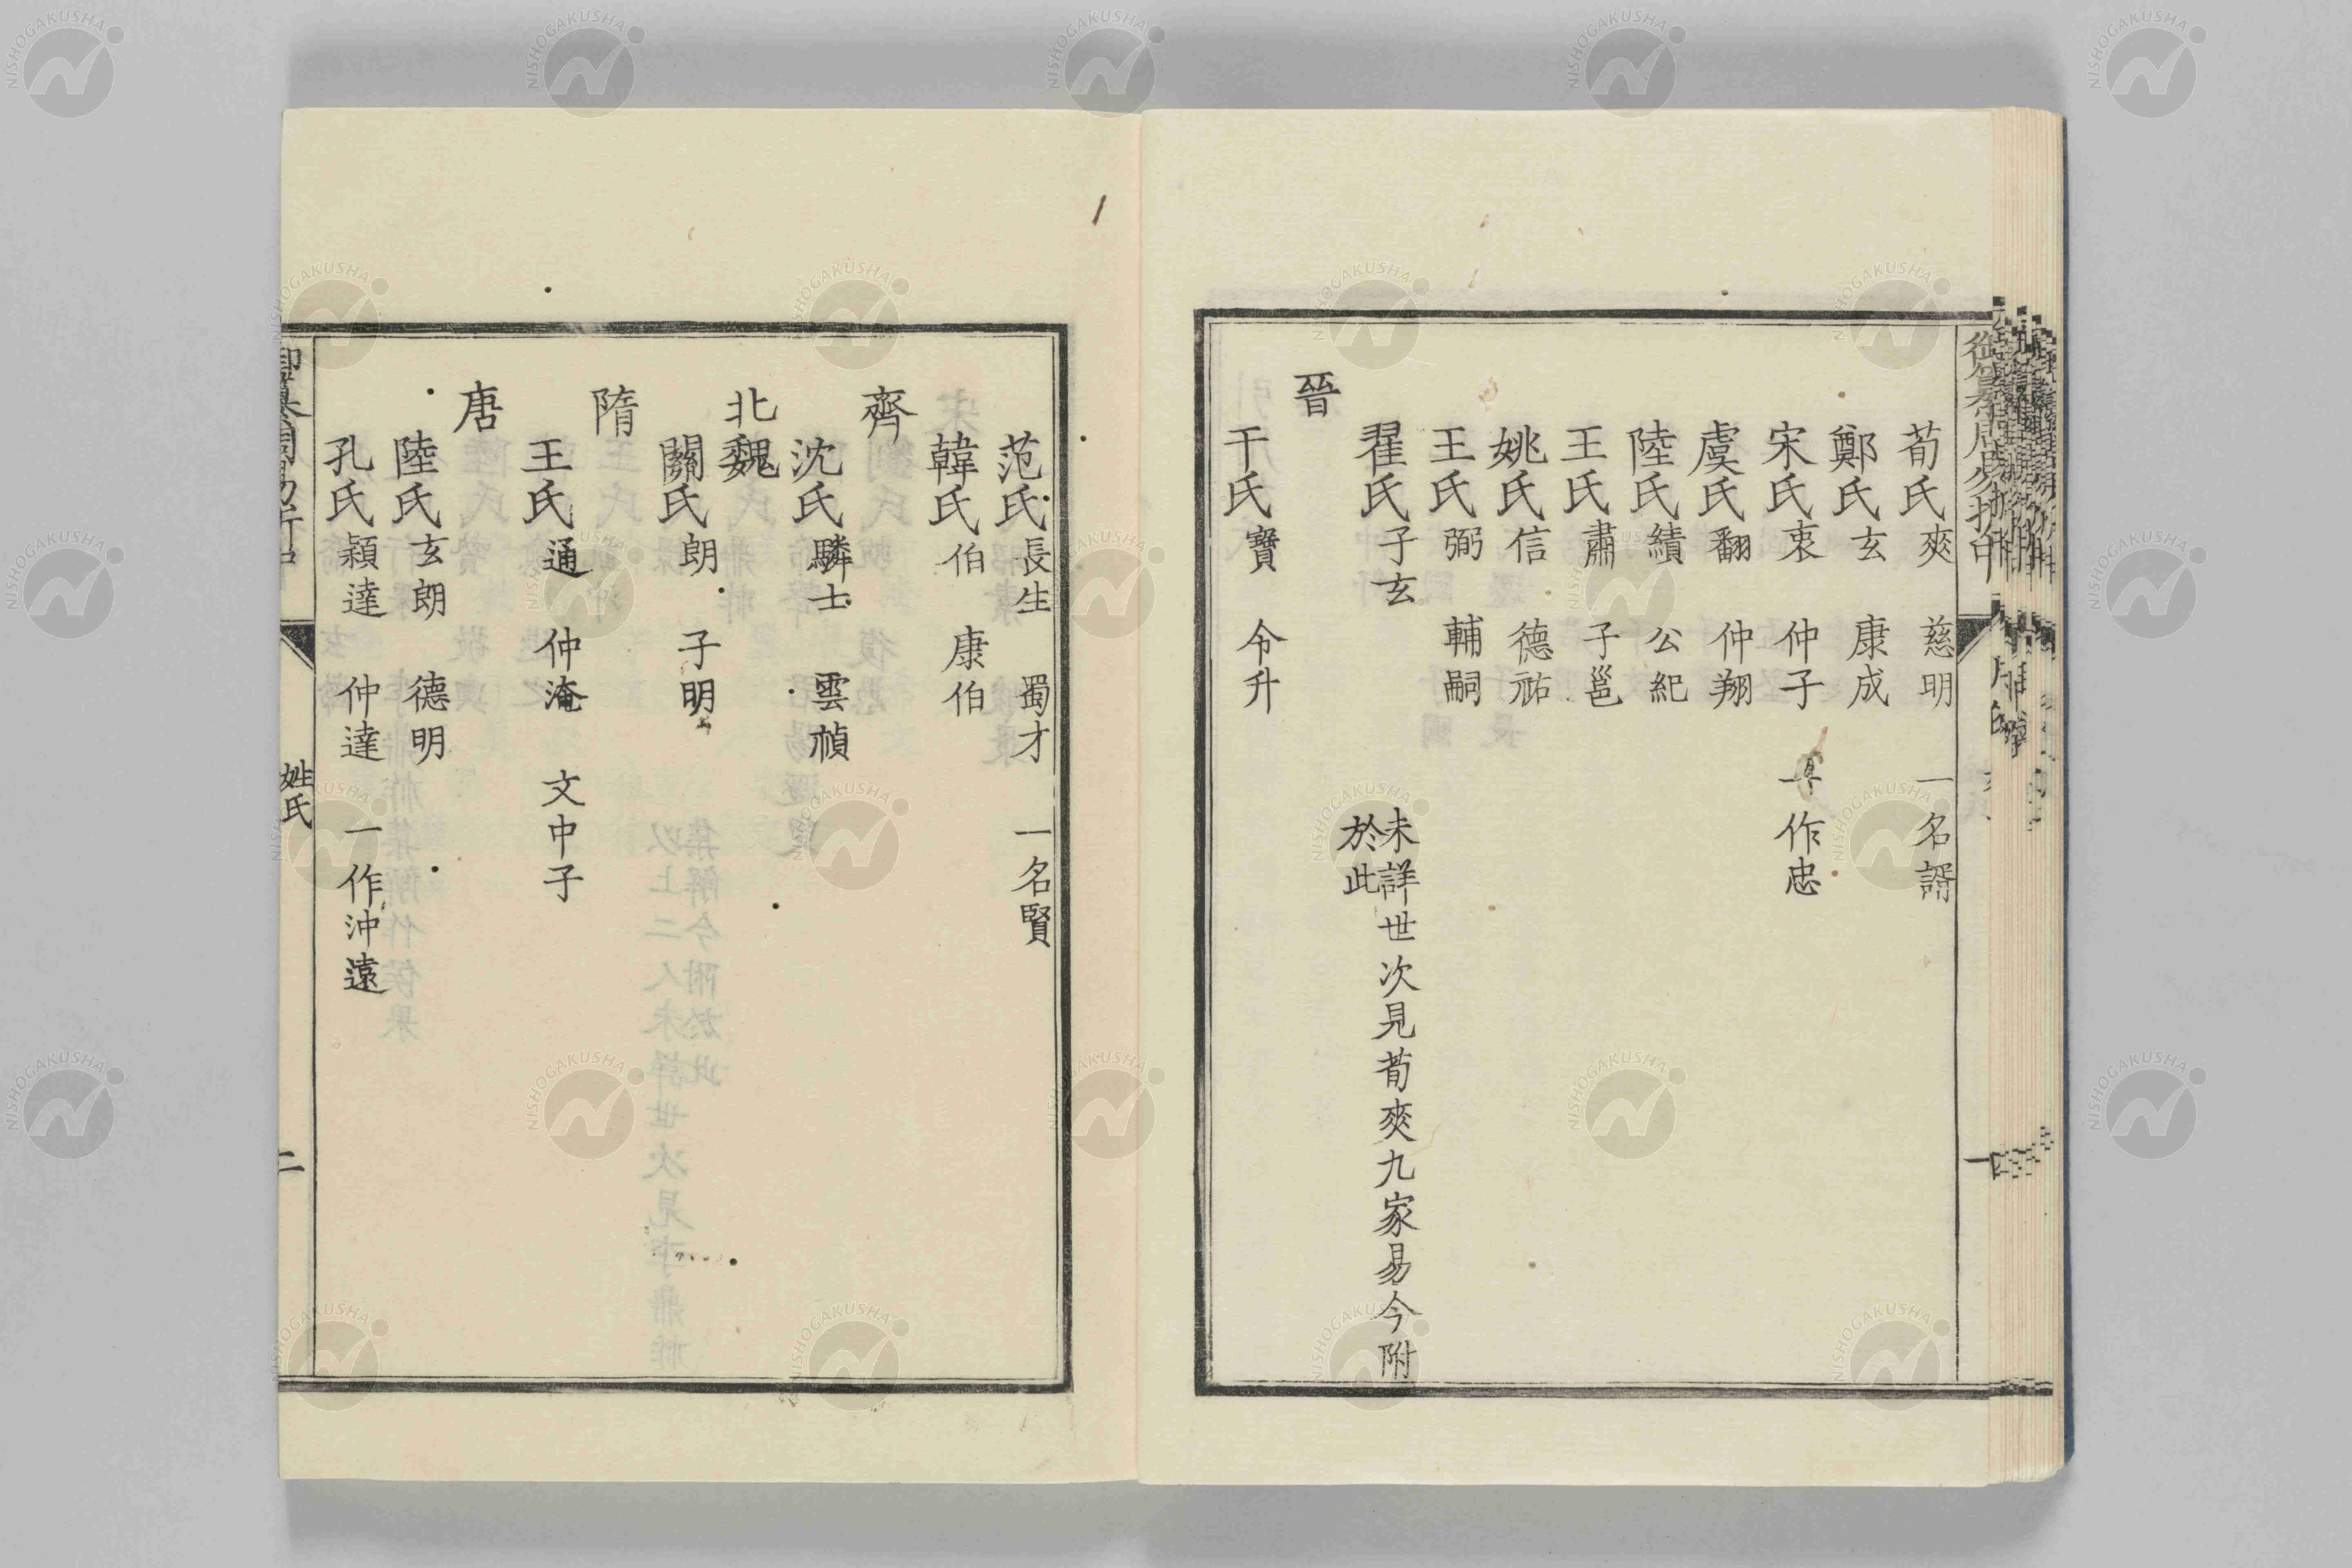 荀氏爽 慈明 一名諝
鄭氏玄 康成
宋氏衷 仲子 一作忠
虞氏翻 仲翔
陸氏績 公紀
王氏肅 子邕
姚氏信 德祐
王氏弼 輔嗣
翟氏子玄 未詳世次見荀爽九家易今附
於此
晉
干氏寶 令升
范氏長生 蜀才 一名賢
韓氏伯 康伯
齊
沈氏驎士 雲禎
北魏
關氏朗 子明
隋
王氏通 仲淹 文中子
唐
陸氏玄朗 德明
孔氏穎達 仲達 一作沖遠
姓氏
二
NISHOGAKUSHA